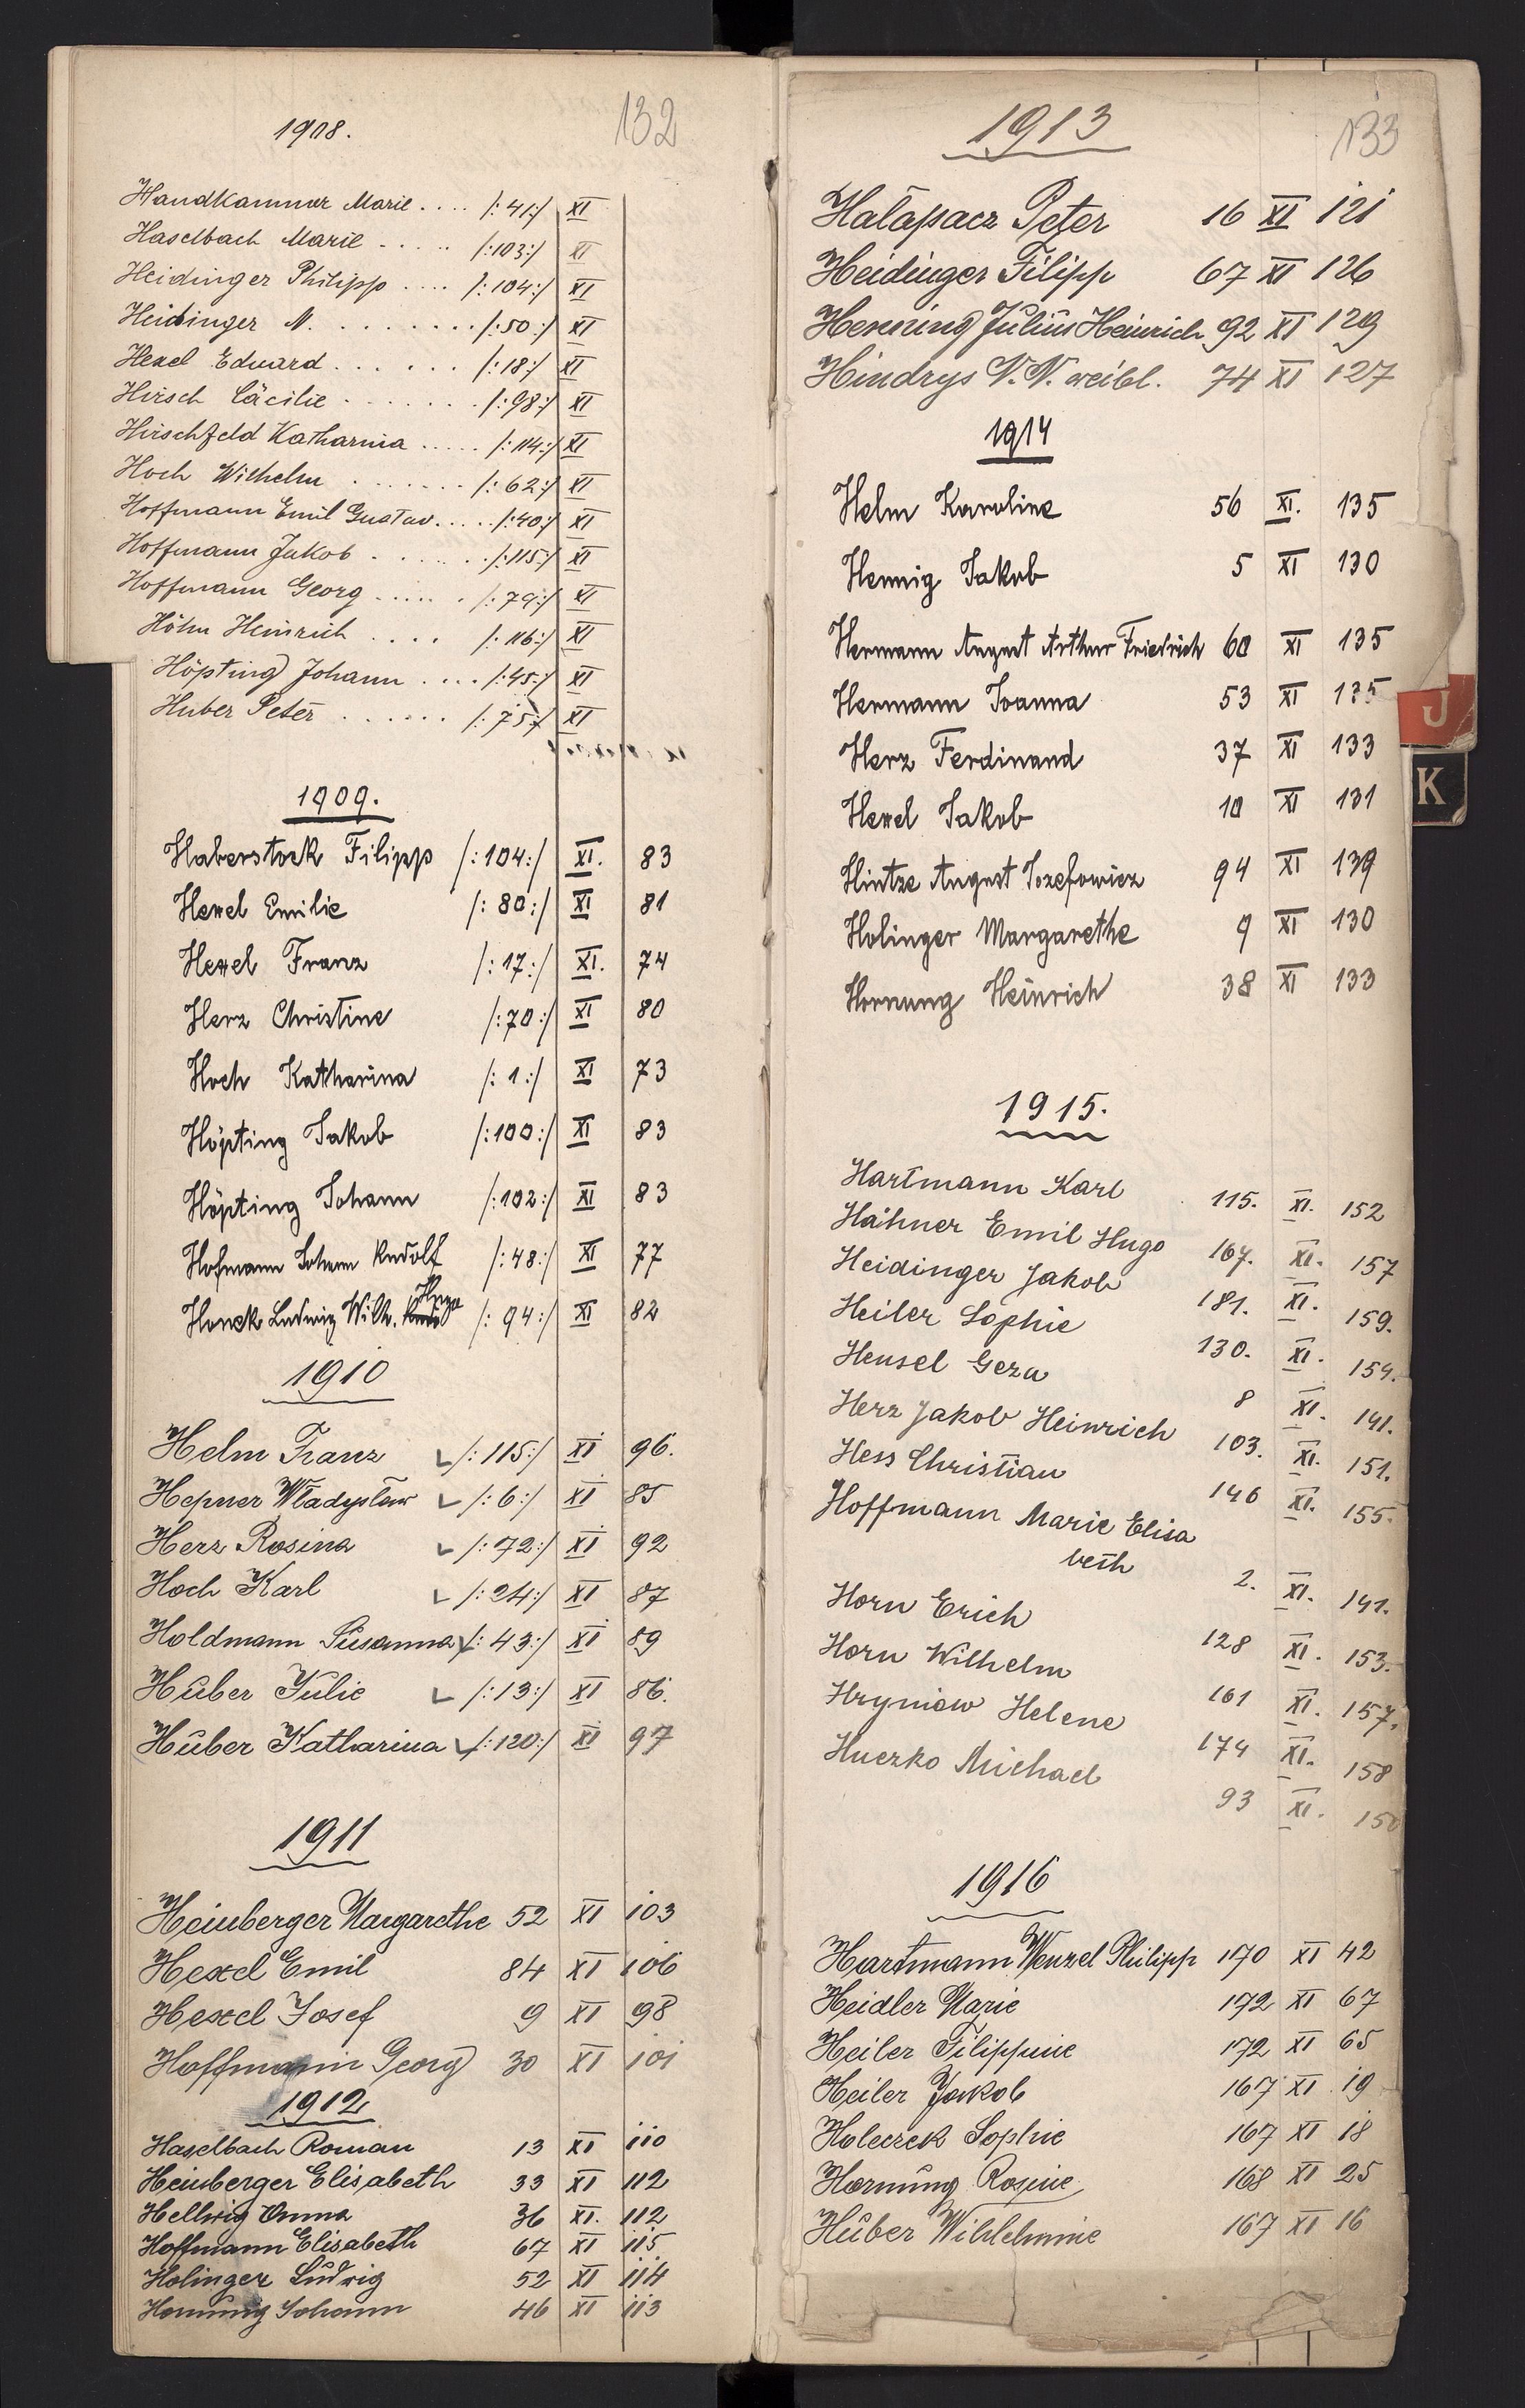 132
1908.
Handkammer Marie .... /:41:/ XI
Haselbach Marie ..... /:103:/ XI
Heidinger Philipp .... /:104:/ XI
Heidinger N. ........ /:50:/ XI
Hexel Eduard ...... /:18:/ XI
Hirsch Cäcilie ....... /:98:/ XI
Hirschfeld Katharina ..... /:114:/ XI
Hoch Wilhelm ....... /:62:/ XI
Hoffmann Emil Gustav ..... /:40:/ XI
Hoffmann Jakob ....... /:115:/ XI
Hoffmann Georg ...... /:79:/ XI
Höhn Heinrich .... /:116:/ XI
Höpting Johann .... /:45:/ XI
Huber Peter ...... /:75:/ XI
1909.
Haberstock Filipp /:104:/ XI. 83
Hexel Emilie /:80:/ XI 81
Hexel Franz /:17:/ XI. 74
Herz Christine /:70:/ XI 80
Hoch Katharina /:1:/ XI 73
Höpting Jakob /:100:/ XI 83
Höpting Johann /:102:/ XI 83
Hofmann Johann Rudolf /:48:/ XI 77
Hugo
Honek Ludwig Wilh. /:94:/ XI 82
1910
Helm Franz /:115:/ XI 96.
Hepner Władysław /:6:/ XI 85
Herz Rosina /:72:/ XI 92
Hoch Karl /:24:/ XI 87
Holdmann Susanna /:43:/ XI 89
Huber Julie /:13:/ XI 86.
Huber Katharina /:120:/ XI 97
1911
Heinberger Margarethe 52 XI 103
Hexel Emil 84 XI 106
Hexel Josef 9 XI 98
Hoffmann Georg 30 XI 101
1912
Haselbach Roman 13 XI 110
Heinberger Elisabeth 33 XI 112
Hellwig Anna 36 XI. 112
Hoffmann Elisabeth 67 XI 115
Holinger Ludwig 52 XI 114
Hornung Johann 46 XI 113
133
1913
Halápacz Peter 16 XI 121
Heidinger Filipp 67 XI 126
Henning Julius Heinrich 92 XI 129
Hindrys N.N. weibl. 74 XI 127
1914
Helm Karoline 56 XI. 135
Hennig Jakob 5 XI 130
Hermann August Arthur Friedrich 60 XI 135
Hermann Joanna 53 XI 135
Herz Ferdinand 37 XI 133
Hexel Jakob 10 XI 131
Hintze August Jozefowicz 94 XI 139
Holinger Margarethe 9 XI 130
Hornung Heinrich 38 XI 133
J
K
1915.
Hartmann Karl 115. XI. 152
Hähner Emil Hugo 167. XI. 157
Heidinger Jakob 181. XI. 159.
Heiler Sophie 130. XI. 154.
Hensel Geza 8 XI. 141.
Herz Jakob Heinrich 103. XI. 151.
Hess Christian 146 XI. 155.
Hoffmann Marie Elisa
beth 2. XI. 141.
Horn Erich 128 XI. 153.
Horn Wilhelm 161 XI. 157.
Hryniow Helene 174 XI. 158
Huczko Michael 93 XI. 150
1916
Hartmann Wenzel Philipp 170 XI 42
Heidler Marie 172 XI 67
Heiler Filippine 172 XI 65
Heiler Jakob 167 XI 19
Holeczek Sophie 167 XI 18
Hornung Rosine 168 XI 25
Huber Wilhelmine 167 XI 16